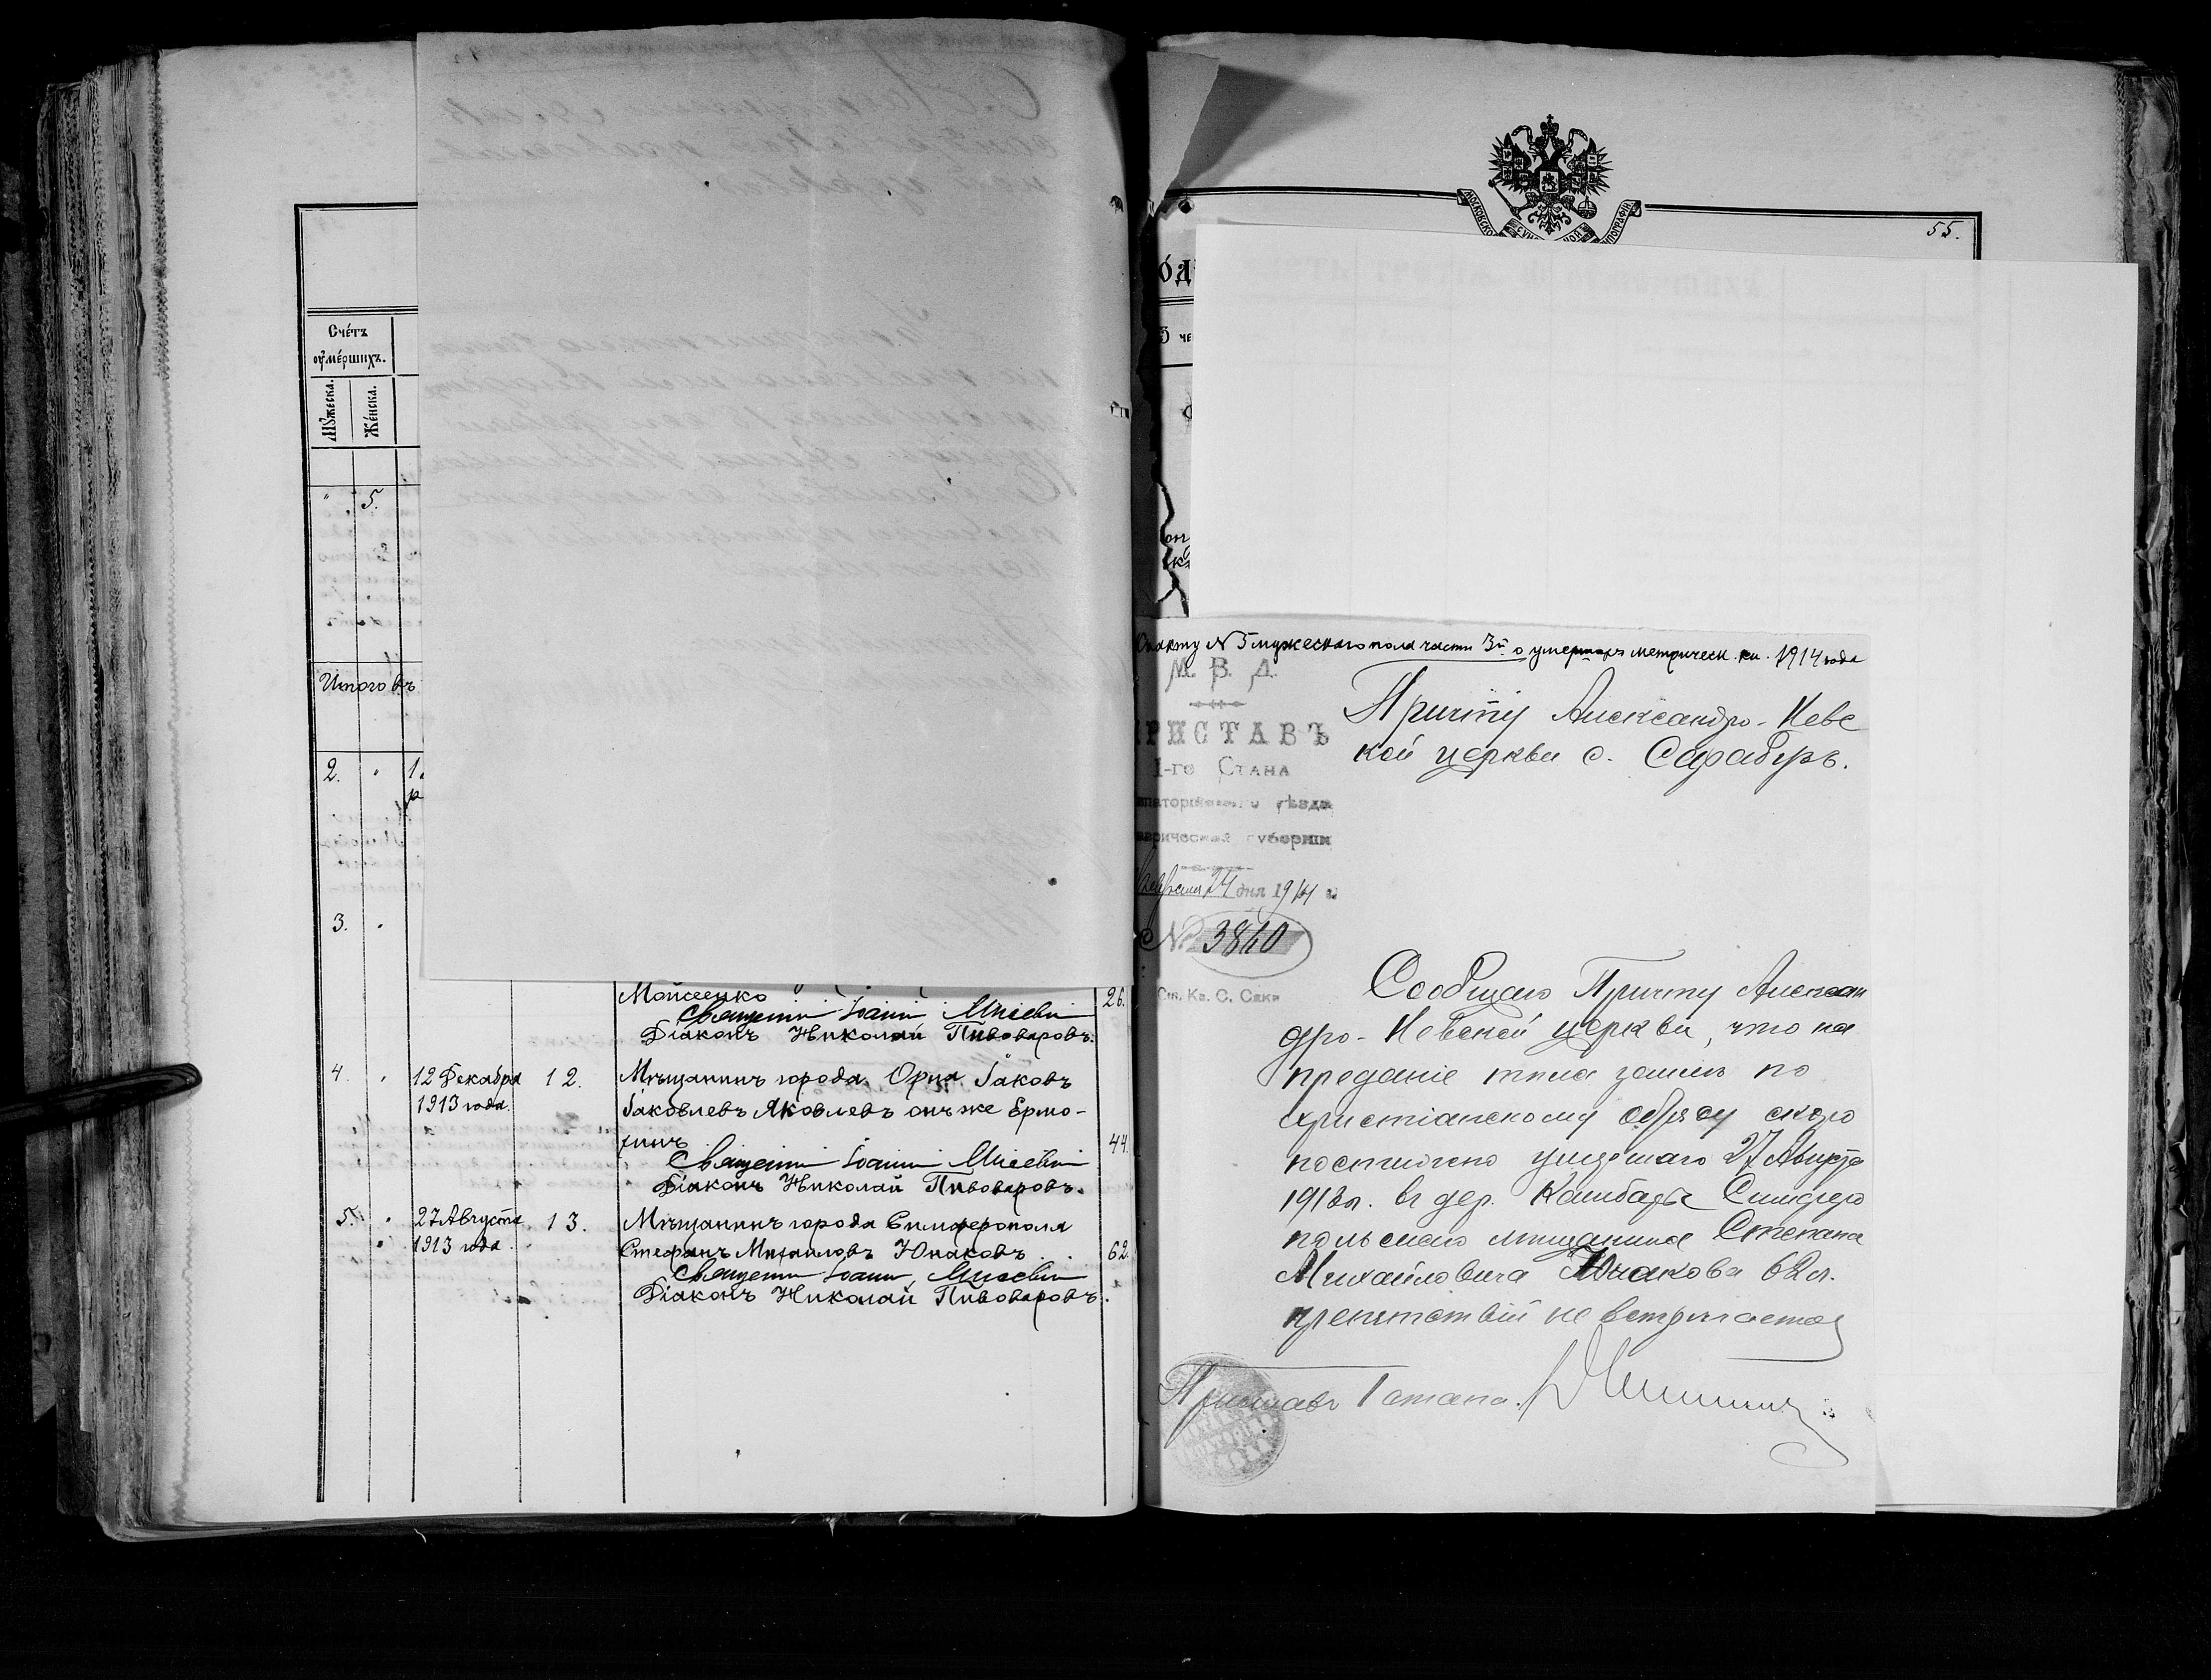 Счéтъ
ᲂу҆мéршихъ.
Мꙋ́жеска.
Жéнска.
5.
Итого въ
2.
1.
3.
Мойсеенко
26.
Священникъ Іоаннъ
Діаконъ Николай Пивоваровъ.
4.
12 Декабря
1913 года.
12.
Мѣщанинъ города Орла Іаковъ
Іаковлевъ Яковлевъ онъ же Ермо-
44
Священникъ Іоаннъ
Діаконъ Николай Пивоваровъ.
5.
27 Августа
1913 года.
13.
Мѣщанинъ города Симферополя
Стефанъ Михаиловъ Юнаковъ
62
Священникъ Іоаннъ
Діаконъ Николай Пивоваровъ.
55.
МОСКОВСКО
ТИПОГРАФІИ
Къ акту № 5 мужескаго пола части 3й о умершихъ метрическ. кн. 1914 года
М. В. Д.
ПРИСТАВЪ
1-го Стана
Евпаторійскаго уѣзда
Таврической губерніи
24 дня 1914 г.
№ 3840
Ст. Кв. С. Саки
Причту Александро-Невс
кой церкви с. Сарабузъ.
Сообщаю Причту Алексан
дро-Невской церкви, что на
преданіе тѣла землѣ по
христіанскому обряду скоро
постижно умершаго 27 Августа
1913 г. въ дер. Камбары Симферо
польскаго мѣщанина Степана
Михайловича Юнакова 62 л.
препятствій не встрѣчается
Приставъ 1 стана